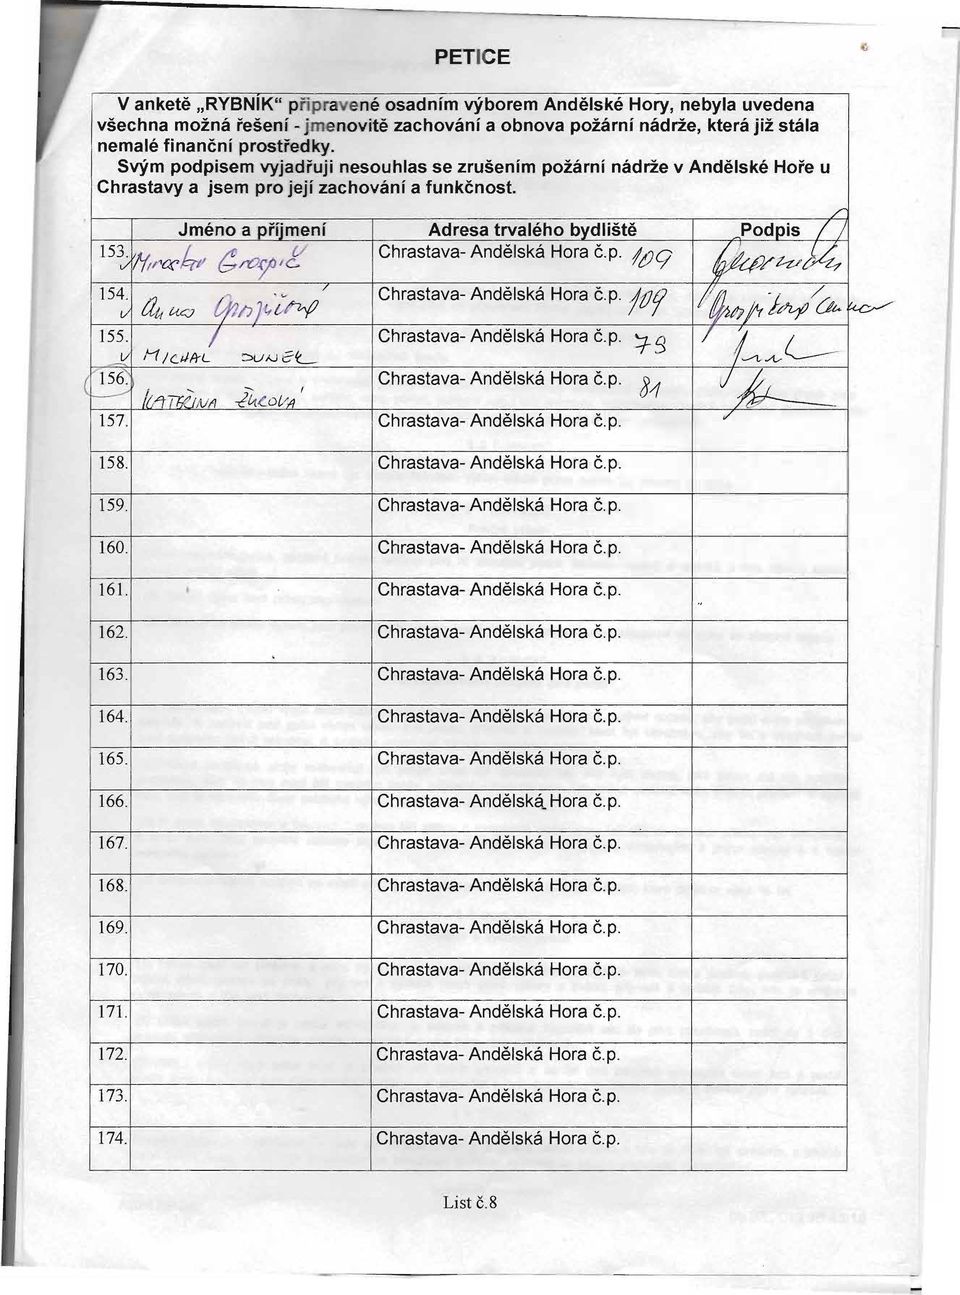 PETICE
V anketě „RYBNÍK“ připravené osadním výborem Andělské Hory, nebyla uvedena
všechna možná řešení - jmenovitě zachování a obnova požární nádrže, která již stála
nemalé finanční prostředky.
Svým podpisem vyjadřuji nesouhlas se zrušením požární nádrže v Andělské Hoře u
Chrastavy a jsem pro její zachování a funkčnost.
Jméno a příjmení Adresa trvalého bydliště Podpis
153. Miroslav Grospič Chrastava- Andělská Hora č.p. 109
154. Anna Chrastava- Andělská Hora č.p. 109
155. MICHAL Chrastava- Andělská Hora č.p. 79
156. KATEŘINA Chrastava- Andělská Hora č.p. 81
157. Chrastava- Andělská Hora č.p.
158. Chrastava- Andělská Hora č.p.
159. Chrastava- Andělská Hora č.p.
160. Chrastava- Andělská Hora č.p.
161. Chrastava- Andělská Hora č.p.
162. Chrastava- Andělská Hora č.p.
163. Chrastava- Andělská Hora č.p.
164. Chrastava- Andělská Hora č.p.
165. Chrastava- Andělská Hora č.p.
166. Chrastava- Andělská Hora č.p.
167. Chrastava- Andělská Hora č.p.
168. Chrastava- Andělská Hora č.p.
169. Chrastava- Andělská Hora č.p.
170. Chrastava- Andělská Hora č.p.
171. Chrastava- Andělská Hora č.p.
172. Chrastava- Andělská Hora č.p.
173. Chrastava- Andělská Hora č.p.
174. Chrastava- Andělská Hora č.p.
List č.8